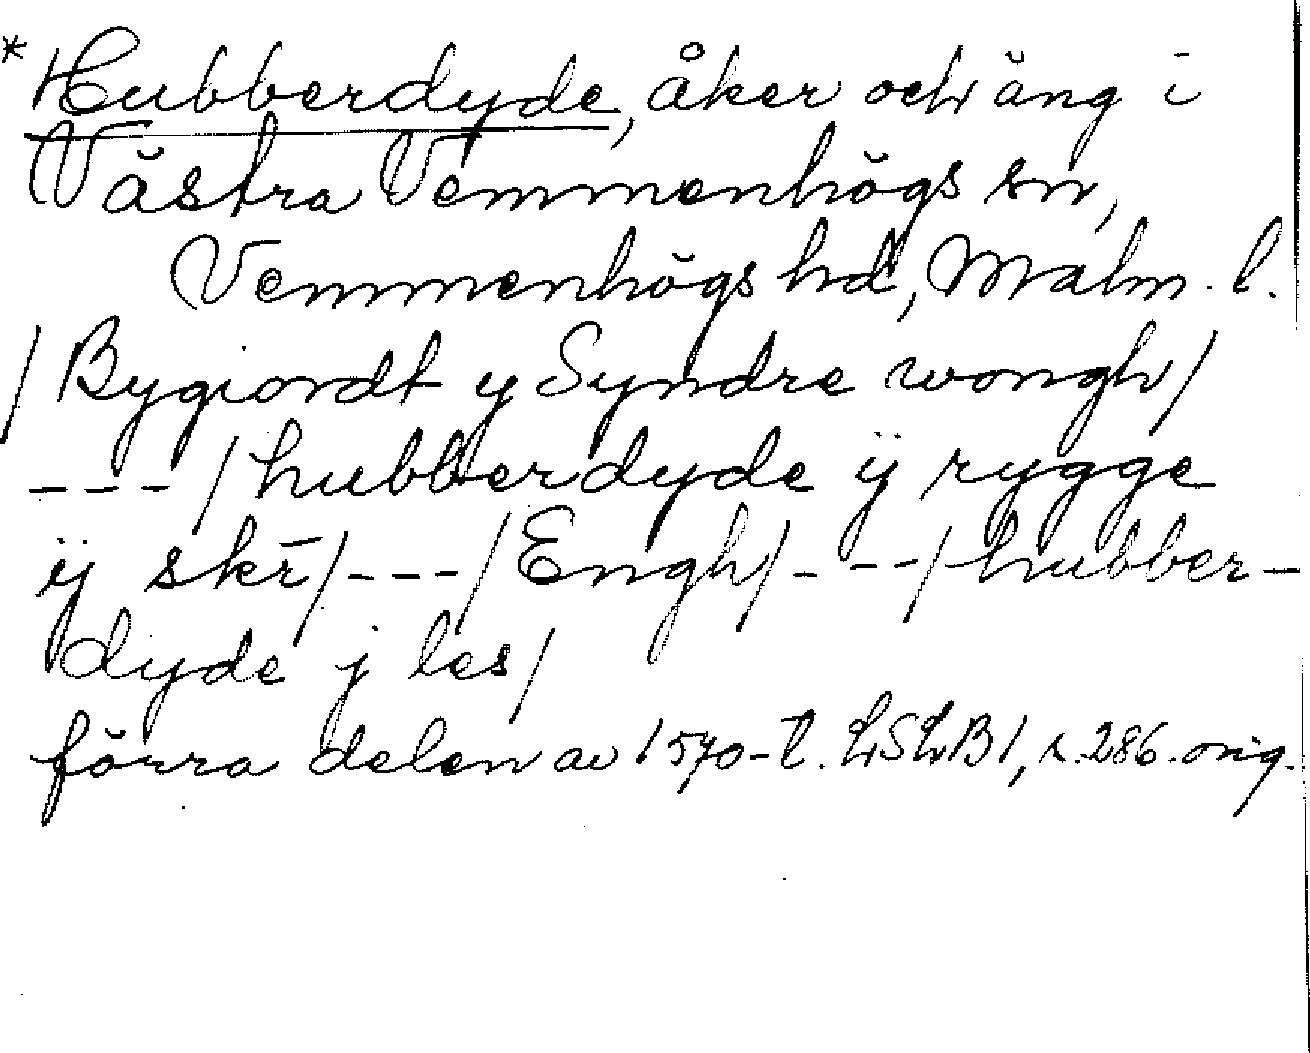 * Hubberdyde, åker och äng i
Västra Vemmenhögs sn,
Vemmenhögs hd, Malm. l.
/Bygiordt y Syndre wongh/
---/hubberdyde ÿ rygge
ÿ skr̄/---/Engh/---/hubber-
dyde j les/
förra delen av 1570-t. LSLB1, s. 286. orig.